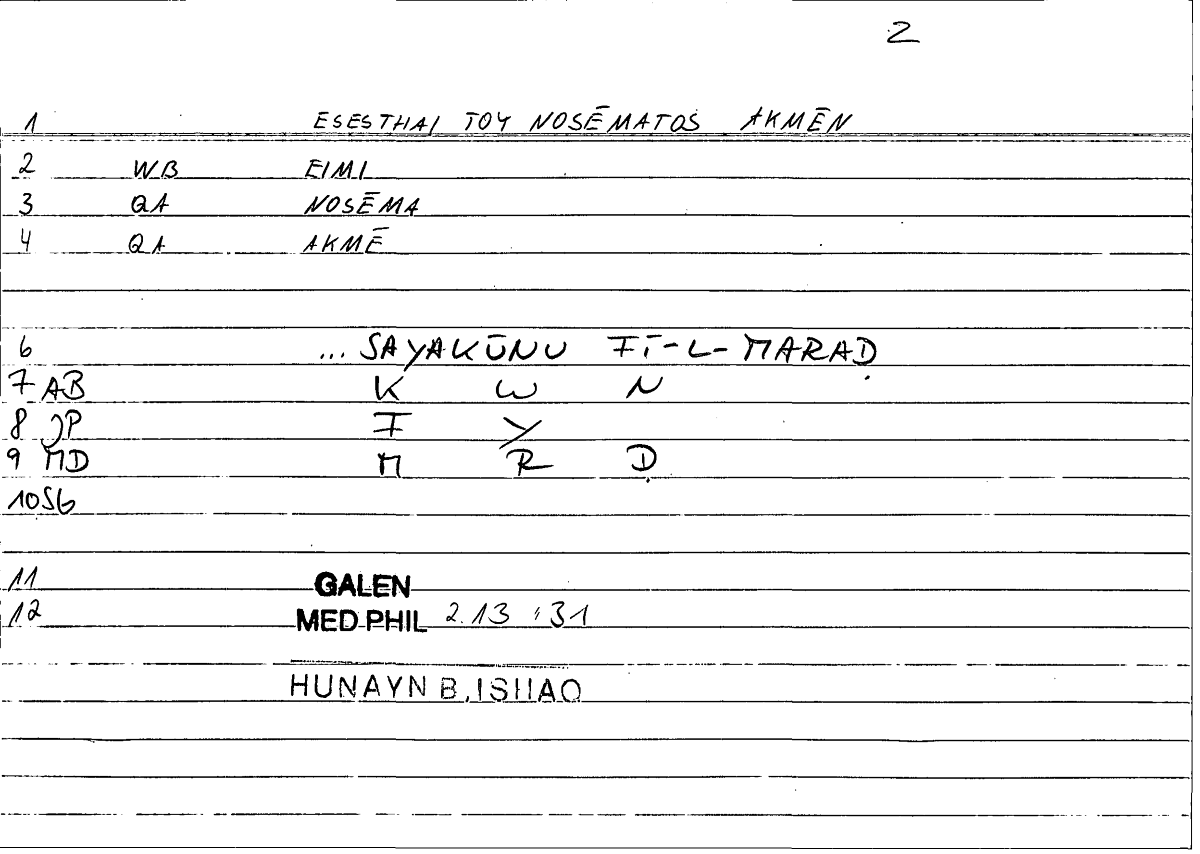 2
1 ESESTHAI TOY NOSĒMATOS AKMĒN
2 WB EIMI
3 QA NOSĒMA
4 QA AKMĒ
6 ... SAYAKŪNU FĪ-L-MARAḌ
7 AB K W N
8 JP F Y
9 MD M R Ḍ
10 SG
11 GALEN
12 MED PHIL 2.13 :31
HUNAYN B. ISHAQ